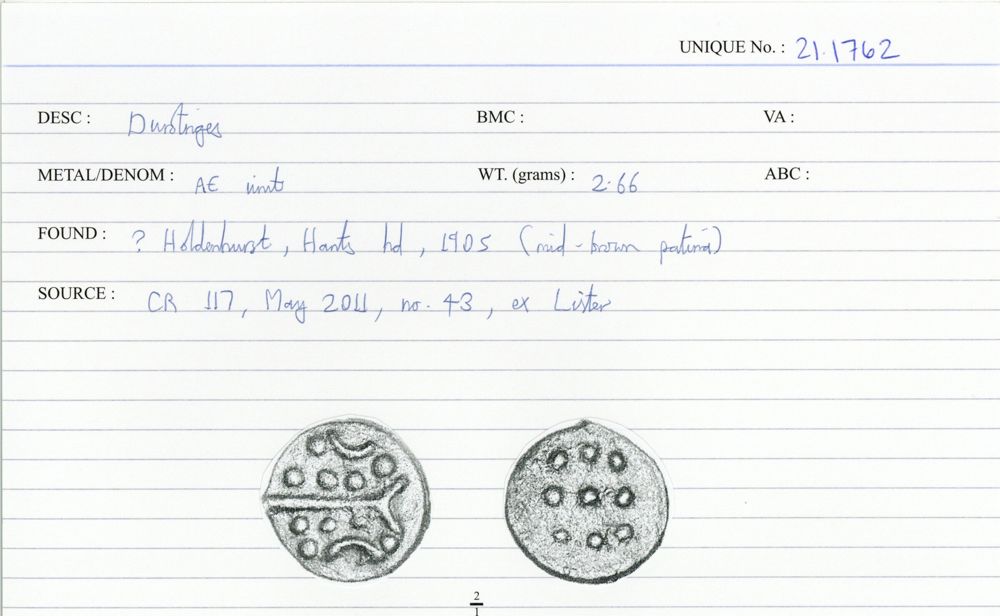 UNIQUE No. : 21.1762
DESC : Durotriges BMC : VA :
METAL/DENOM : AE unit WT. (grams) : 2.66 ABC :
FOUND : ? Holdenhurst, Hants hd, 1905 (mid-brown patina)
SOURCE : CR 117, May 2011, no. 43, ex Lister
2
1